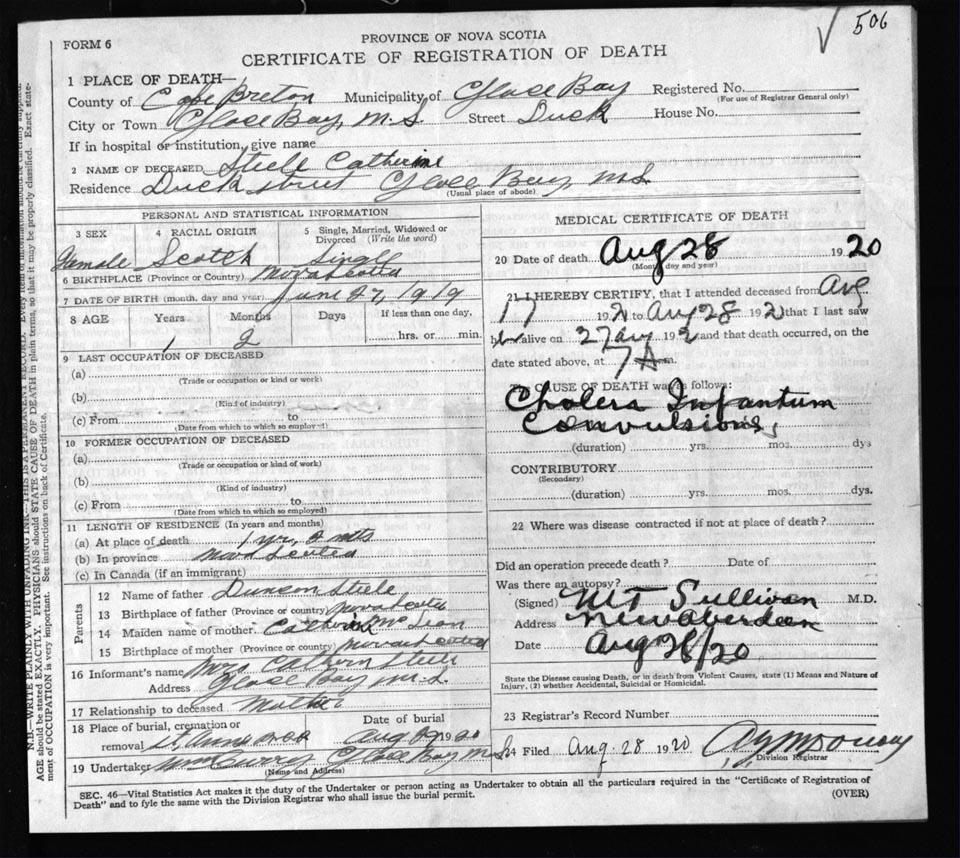 506
FORM 6
PROVINCE OF NOVA SCOTIA
CERTIFICATE OF REGISTRATION OF DEATH
1 PLACE OF DEATH—
County of Cape Breton Municipality of Glace Bay Registered No.
(For use of Registrar General only)
City or Town Glace Bay, N.S. Street Duck House No.
If in hospital or institution, give name
2 NAME OF DECEASED Steele Catherine
Residence Duck street Glace Bay, N.S.
(Usual place of abode)
PERSONAL AND STATISTICAL INFORMATION
3 SEX 4 RACIAL ORIGIN 5 Single, Married, Widowed or Divorced (Write the word)
Female Scotch Single
6 BIRTHPLACE (Province or Country) Nova Scotia
7 DATE OF BIRTH (month, day and year) June 27, 1919
8 AGE Years Months Days If less than one day,
1 2 hrs. or min.
9 LAST OCCUPATION OF DECEASED
(a)
(Trade or occupation or kind or work)
(b)
(Kind of industry)
(c) From to
(Date from which to which so employed)
10 FORMER OCCUPATION OF DECEASED
(a)
(Trade or occupation or kind of work)
(b)
(Kind of industry)
(c) From to
(Date from which to which so employed)
11 LENGTH OF RESIDENCE (In years and months)
(a) At place of death 1 yr, 2 mts
(b) In province Nova Scotia
(c) In Canada (if an immigrant)
Parents
12 Name of father Duncan Steele
13 Birthplace of father (Province or country) Nova Scotia
14 Maiden name of mother Catherine McLean
15 Birthplace of mother (Province or country) Nova Scotia
16 Informant's name Mrs Cathern Steele
Address Glace Bay N.S.
17 Relationship to deceased Mother
18 Place of burial, cremation or removal St. Anns Date of burial
Aug 1920
19 Undertaker Glace Bay N.S.
(Name and Address)
MEDICAL CERTIFICATE OF DEATH
20 Date of death Aug 28 1920
(Month, day and year)
21 I HEREBY CERTIFY, that I attended deceased from Aug
17 192 to Aug 28 192 that I last saw
h alive on 27 Aug 192 and that death occurred, on the
date stated above, at 7 A.m.
The CAUSE OF DEATH was as follows:
Cholera Infantum
Convulsions,
(duration) yrs. mos. dys
CONTRIBUTORY
(Secondary)
(duration) yrs. mos. dys.
22 Where was disease contracted if not at place of death?
Did an operation precede death? Date of
Was there an autopsy?
(Signed) M T Sullivan M.D.
Address New Aberdeen
Date Aug 28/20
State the Disease causing Death, or in death from Violent Causes, state (1) Means and Nature of
Injury, (2) whether Accidental, Suicidal or Homicidal.
23 Registrar's Record Number
24 Filed Aug. 28 1920
Division Registrar
SEC. 46—Vital Statistics Act makes it the duty of the Undertaker or person acting as Undertaker to obtain all the particulars required in the "Certificate of Registration of
Death" and to fyle the same with the Division Registrar who shall issue the burial permit. (OVER)
N.B.—WRITE PLAINLY WITH UNFADING INK—THIS IS A PERMANENT RECORD. Every item of information should be carefully supplied.
AGE should be stated EXACTLY. PHYSICIANS should STATE CAUSE OF DEATH in plain terms, so that it may be properly classified. Exact state-
ment of OCCUPATION is very important. See instructions on back of Certificate.